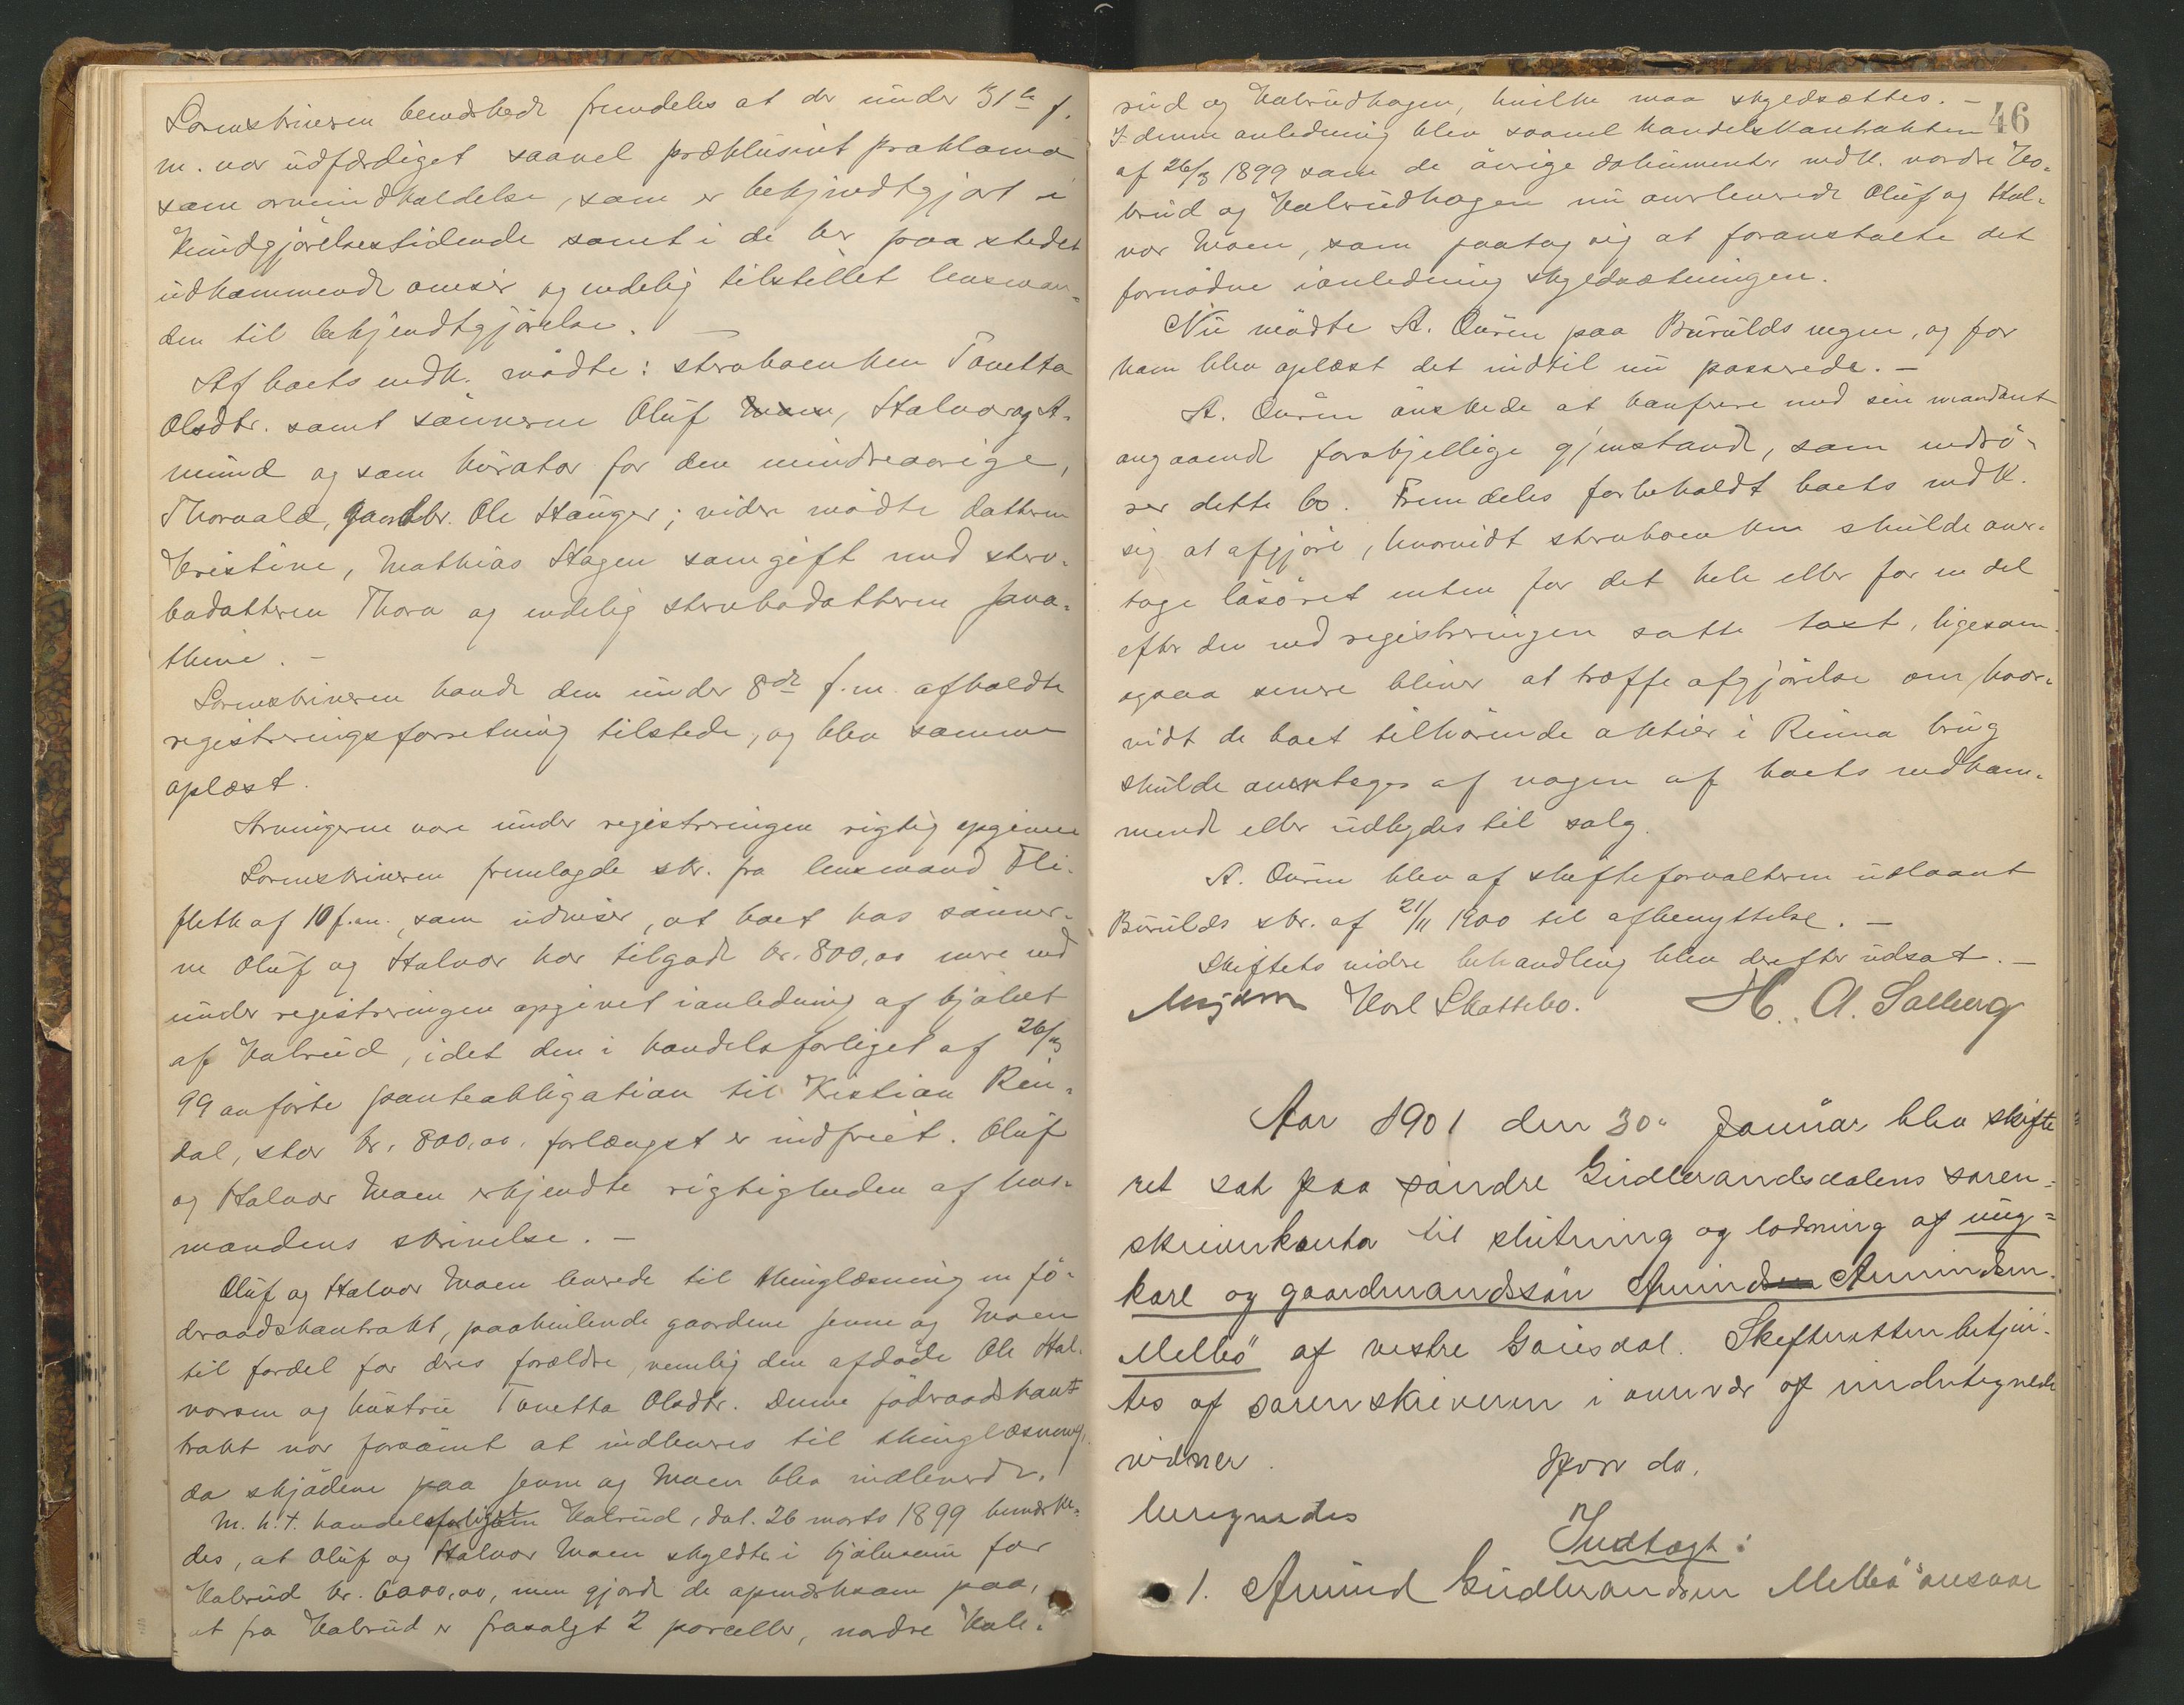 Sorenskriveren bemærkede fremdeles at der under 31te f.
m. var udfærdiget saavel præklusivt proklama
som arveindkaldelse, som er bekjendtgjort i
Kundgjørelsestidende samt i de her paa stedet
udkommende aviser og endelig tilstillet lensman-
den til bekjendtgjørelse. —
Af boets vedk. mødte: stervboenken Tonetta
Olsdtr. samt sønnerne Oluf Moen, Halvor og A-
mund og som kurator for den mindreaarige,
Thorvald, gaardbr. Ole Hauger; videre mødte datteren
Kristine, Mathias Hagen som gift med sterv-
bodatteren Thora og endelig stervbodatteren Jona-
thine. —
Sorenskriveren havde den under 8de f.m. afholdte
registreringsforretning tilstede, og blev samme
oplæst.
Arvingerne vare under registreringen rigtig opgivne
Sorenskriveren fremlagde skr. fra lensmand Fli-
fleth af 10 f.m., som udviser, at boet hos sønner-
ne Oluf og Halvor har tilgode kr. 800,00 mere end
under registreringen opgivet i anledning af kjøbet
af Kalrud, idet den i handelsforliget af 26/3
99 anførte panteobligation til Kristian Rin-
dal, stor kr. 800,00, forlængst er indfriet. Oluf
og Halvor Moen erkjendte rigtigheden af lens-
mandens skrivelse. —
Oluf og Halvor Moen leverede til thinglæsning en fø-
draadskontrakt, paahvilende gaardene Jevne og Moen
til fordel for deres forældre, nemlig den afdøde Ole Hal-
vorsen og hustru Tonetta Olsdtr. Denne fødraadskont
trakt var forsømt at indleveres til thinglæsning,
da skjøderne paa Jevne og Moen blev indleverede.
M. h. t. handelsforliget om Kalrud, dat. 26 marts 1899 bemærke-
des, at Oluf og Halvor Moen skyldte i kjøbesum for
Kalrud kr. 6000,00, men gjorde de opmærksom paa,
at fra Kalrud er frasolgt 2 parceller, nordre Kal-
46
rud og Kalrudhagen, hvilke maa skyldsættes. —
I denne anledning blev saavel handelskontrakten
af 26/3 1899 som de øvrige dokumenter vedk. nordre Kal-
brud og Kalrudhagen nu overleverede Oluf og Hal-
vor Moen, som paatog sig at foranstalte det
fornødne i anledning skyldsætningen.
Nu mødte A. Ouren paa Burulds vegne, og for
ham blev oplæst det indtil nu passerede. —
A. Ouren ønskede at konferere med sin mandant
angaaende forskjellige gjenstande, som vedrø-
rer dette bo. Fremdeles forbeholdt boets vedk.
sig at afgjøre, hvorvidt stervboenken skulde over-
tage løsøret enten for det hele eller for en del
efter den ved registreringen satte taxt, ligesom
ogsaa senere bliver at træffe afgjørelse om hvor-
vidt de boet tilhørende aktier i Rinna brug
skulde overtages af nogen af boets vedkom-
mende eller udbydes til salg.
A. Ouren blev af skifteforvalteren udlaant
Burulds skr. af 21/11 1900 til afbenyttelse. —
Skiftets videre behandling blev derefter udsat. —
Karl Skattebo. H. A. Solberg
Aar 1901 den 30. Januar blev skifte
ret sat paa søndre Gudbrandsdalens soren-
skriverkontor til slutning og lodning af ung-
karl og gaardmandssøn Amundsen Amundsen
Melbø af vestre Gausdal. Skifteretten betjen-
tes af sorenskriveren i overvær af undertegnede
vidner. Hvor da.
beregnedes
Indtægt:
1. Amund Gudbrandsen Melbø's ansvar